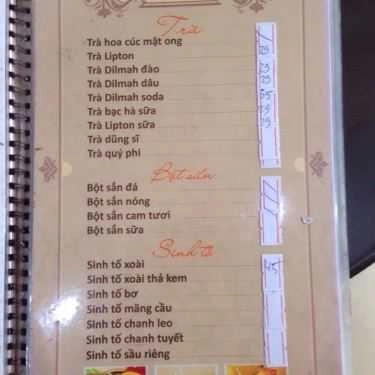 Trà
Trà hoa cúc mật ong
Trà Lipton
Trà Dilmah đào
Trà Dilmah dâu
Trà Dilmah soda
Trà bạc hà sữa
Trà Lipton sữa
Trà dũng sĩ
Trà quý phi
Bột sắn
Bột sắn đá
Bột sắn nóng
Bột sắn cam tươi
Bột sắn sữa
Sinh tố
Sinh tố xoài 45
Sinh tố xoài thả kem
Sinh tố bơ
Sinh tố mãng cầu
Sinh tố chanh leo
Sinh tố chanh tuyết
Sinh tố sầu riêng